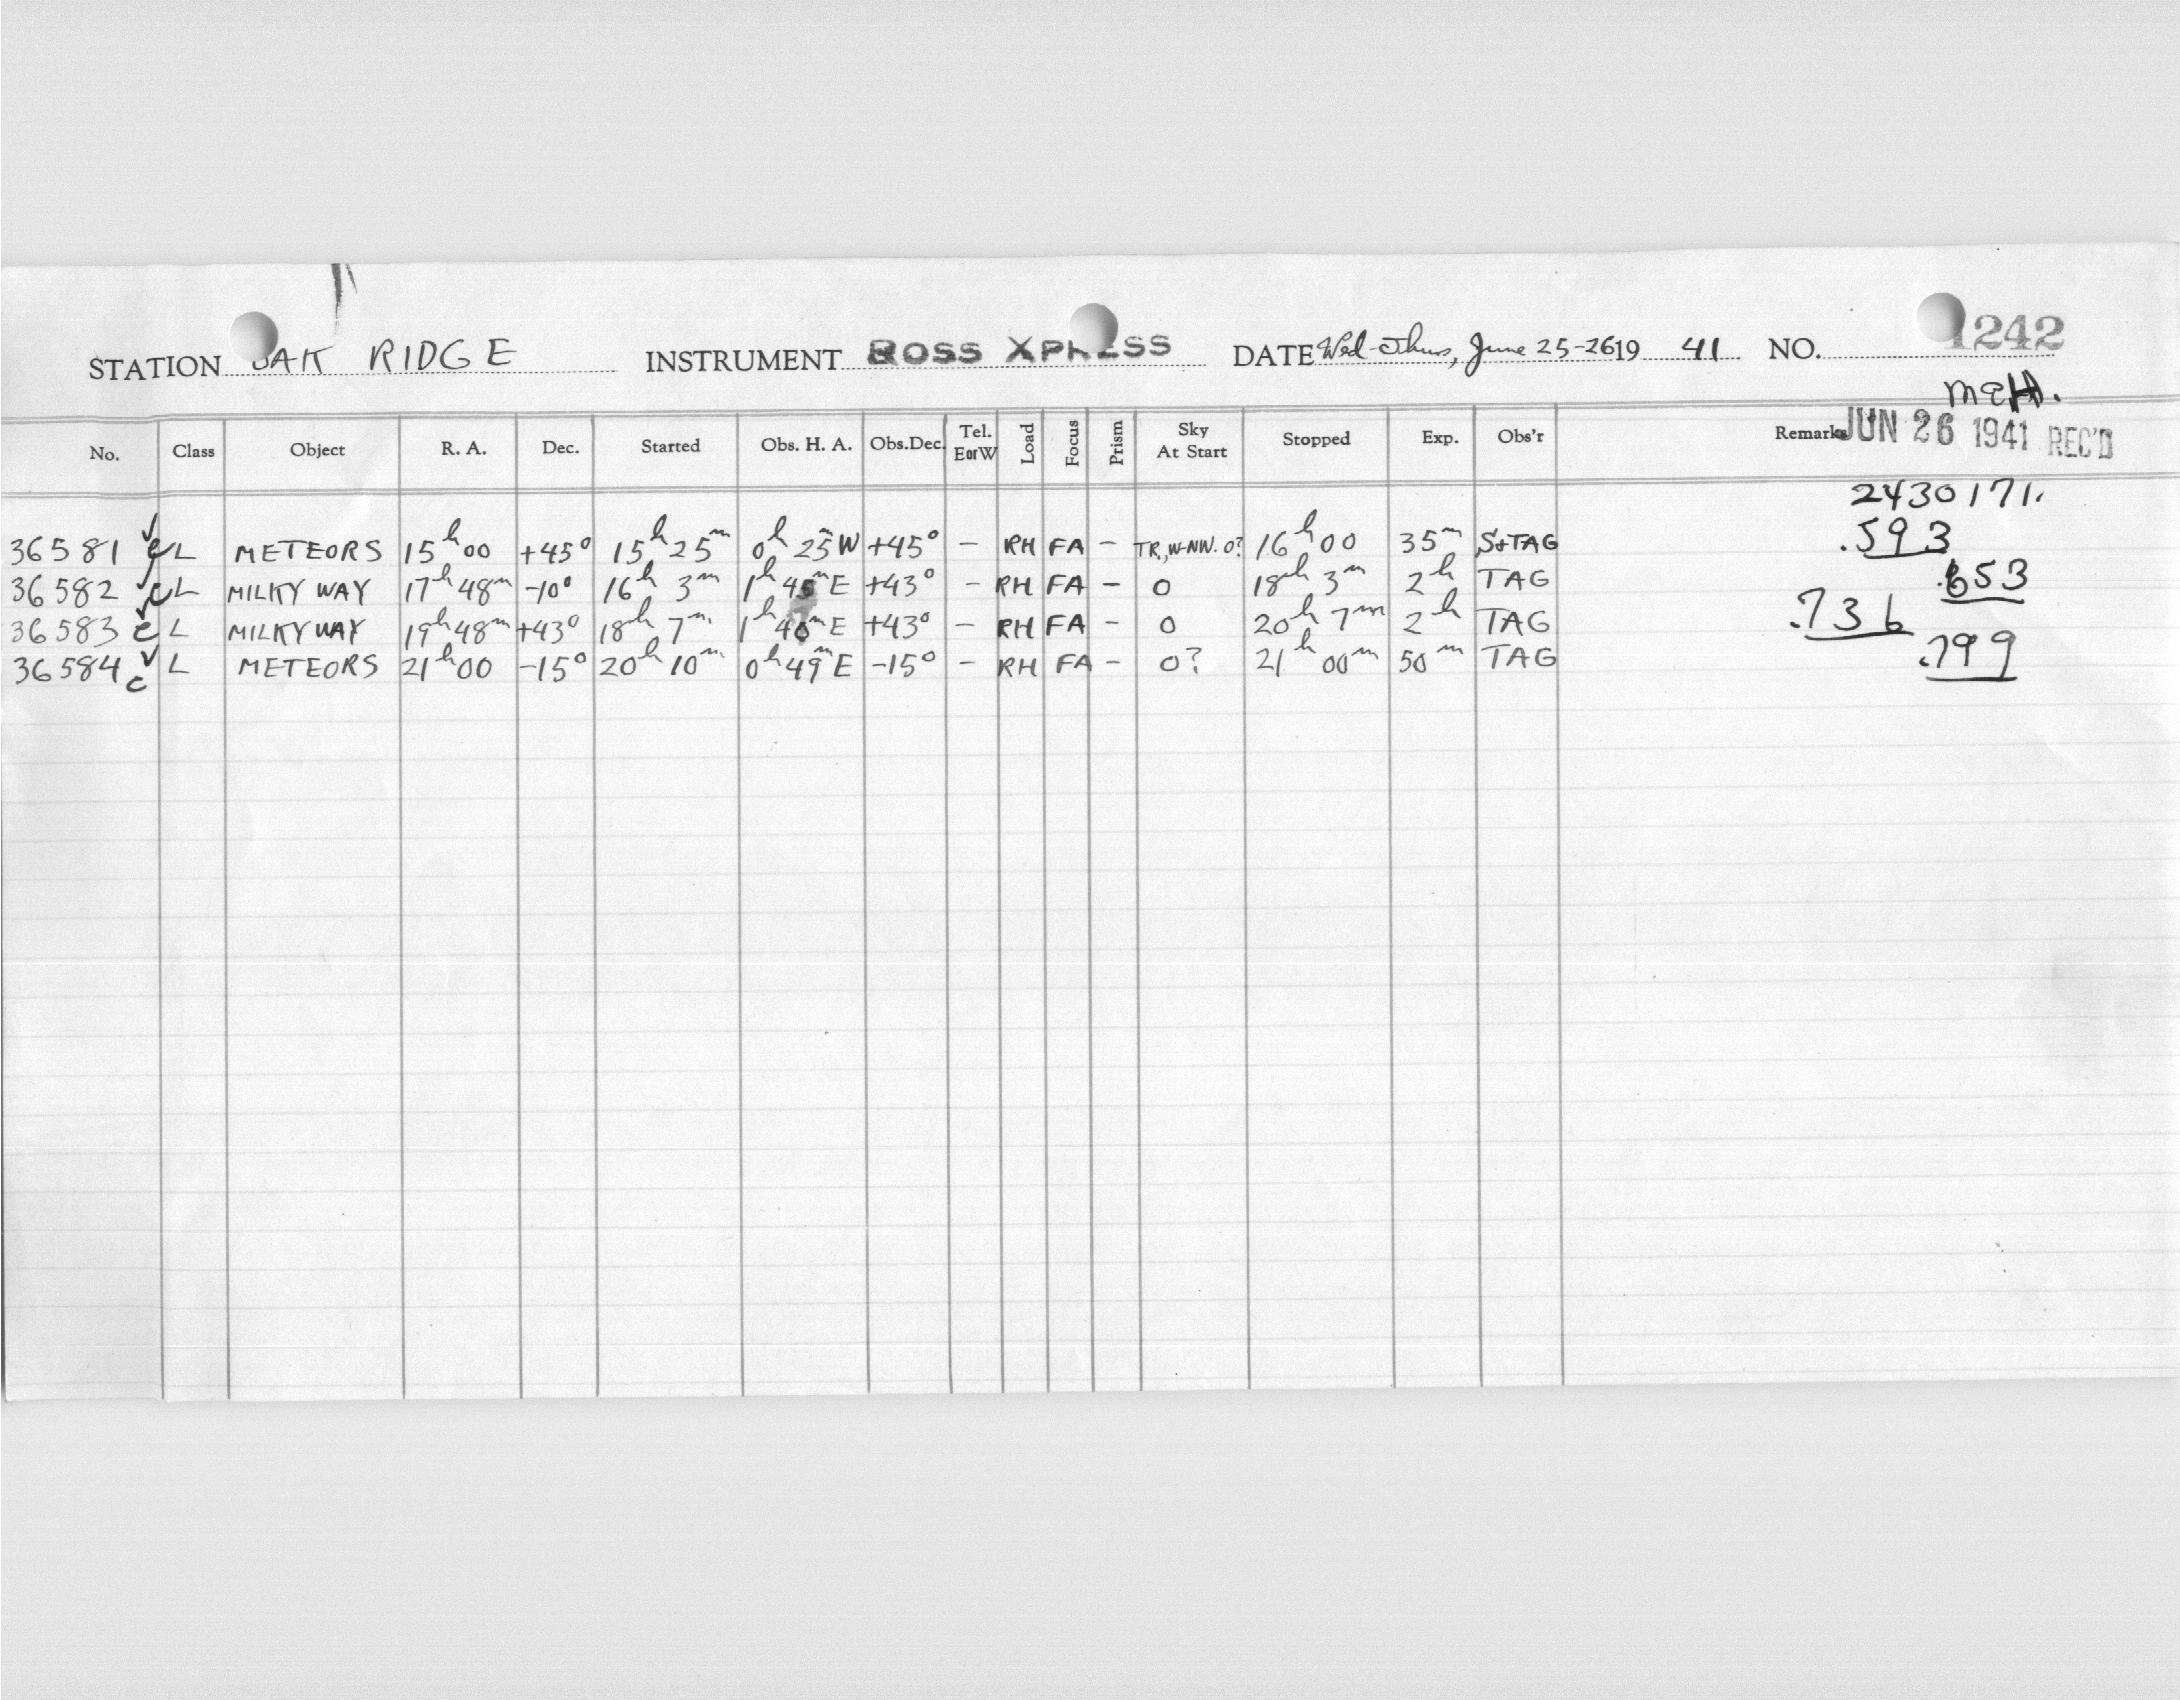 STATION OAK RIDGE INSTRUMENT ROSS XPRESS DATE Wed-Thurs, June 25-26 19 41 NO. 1242
McH.
No. Class Object R. A. Dec. Started Obs. H. A. Obs.Dec. Tel. E or W Load Focus Prism Sky At Start Stopped Exp. Obs'r Remarks JUN 26 1941 REC'D
2430171.
36581 c L METEORS 15h00 +45° 15h25m 0h25mW +45° - RH FA - TR., W-NW. 0? 16h00 35m S+TAG .593
36582 c L MILKY WAY 17h48m -10° 16h 3m 1h45mE +43° - RH FA - 0 18h 3m 2h TAG .653
36583 c L MILKY WAY 19h48m +43° 18h 7m 1h40mE +43° - RH FA - 0 20h 7m 2h TAG .736
36584 c L METEORS 21h00 -15° 20h10m 0h49mE -15° - RH FA - 0? 21h00m 50m TAG .799